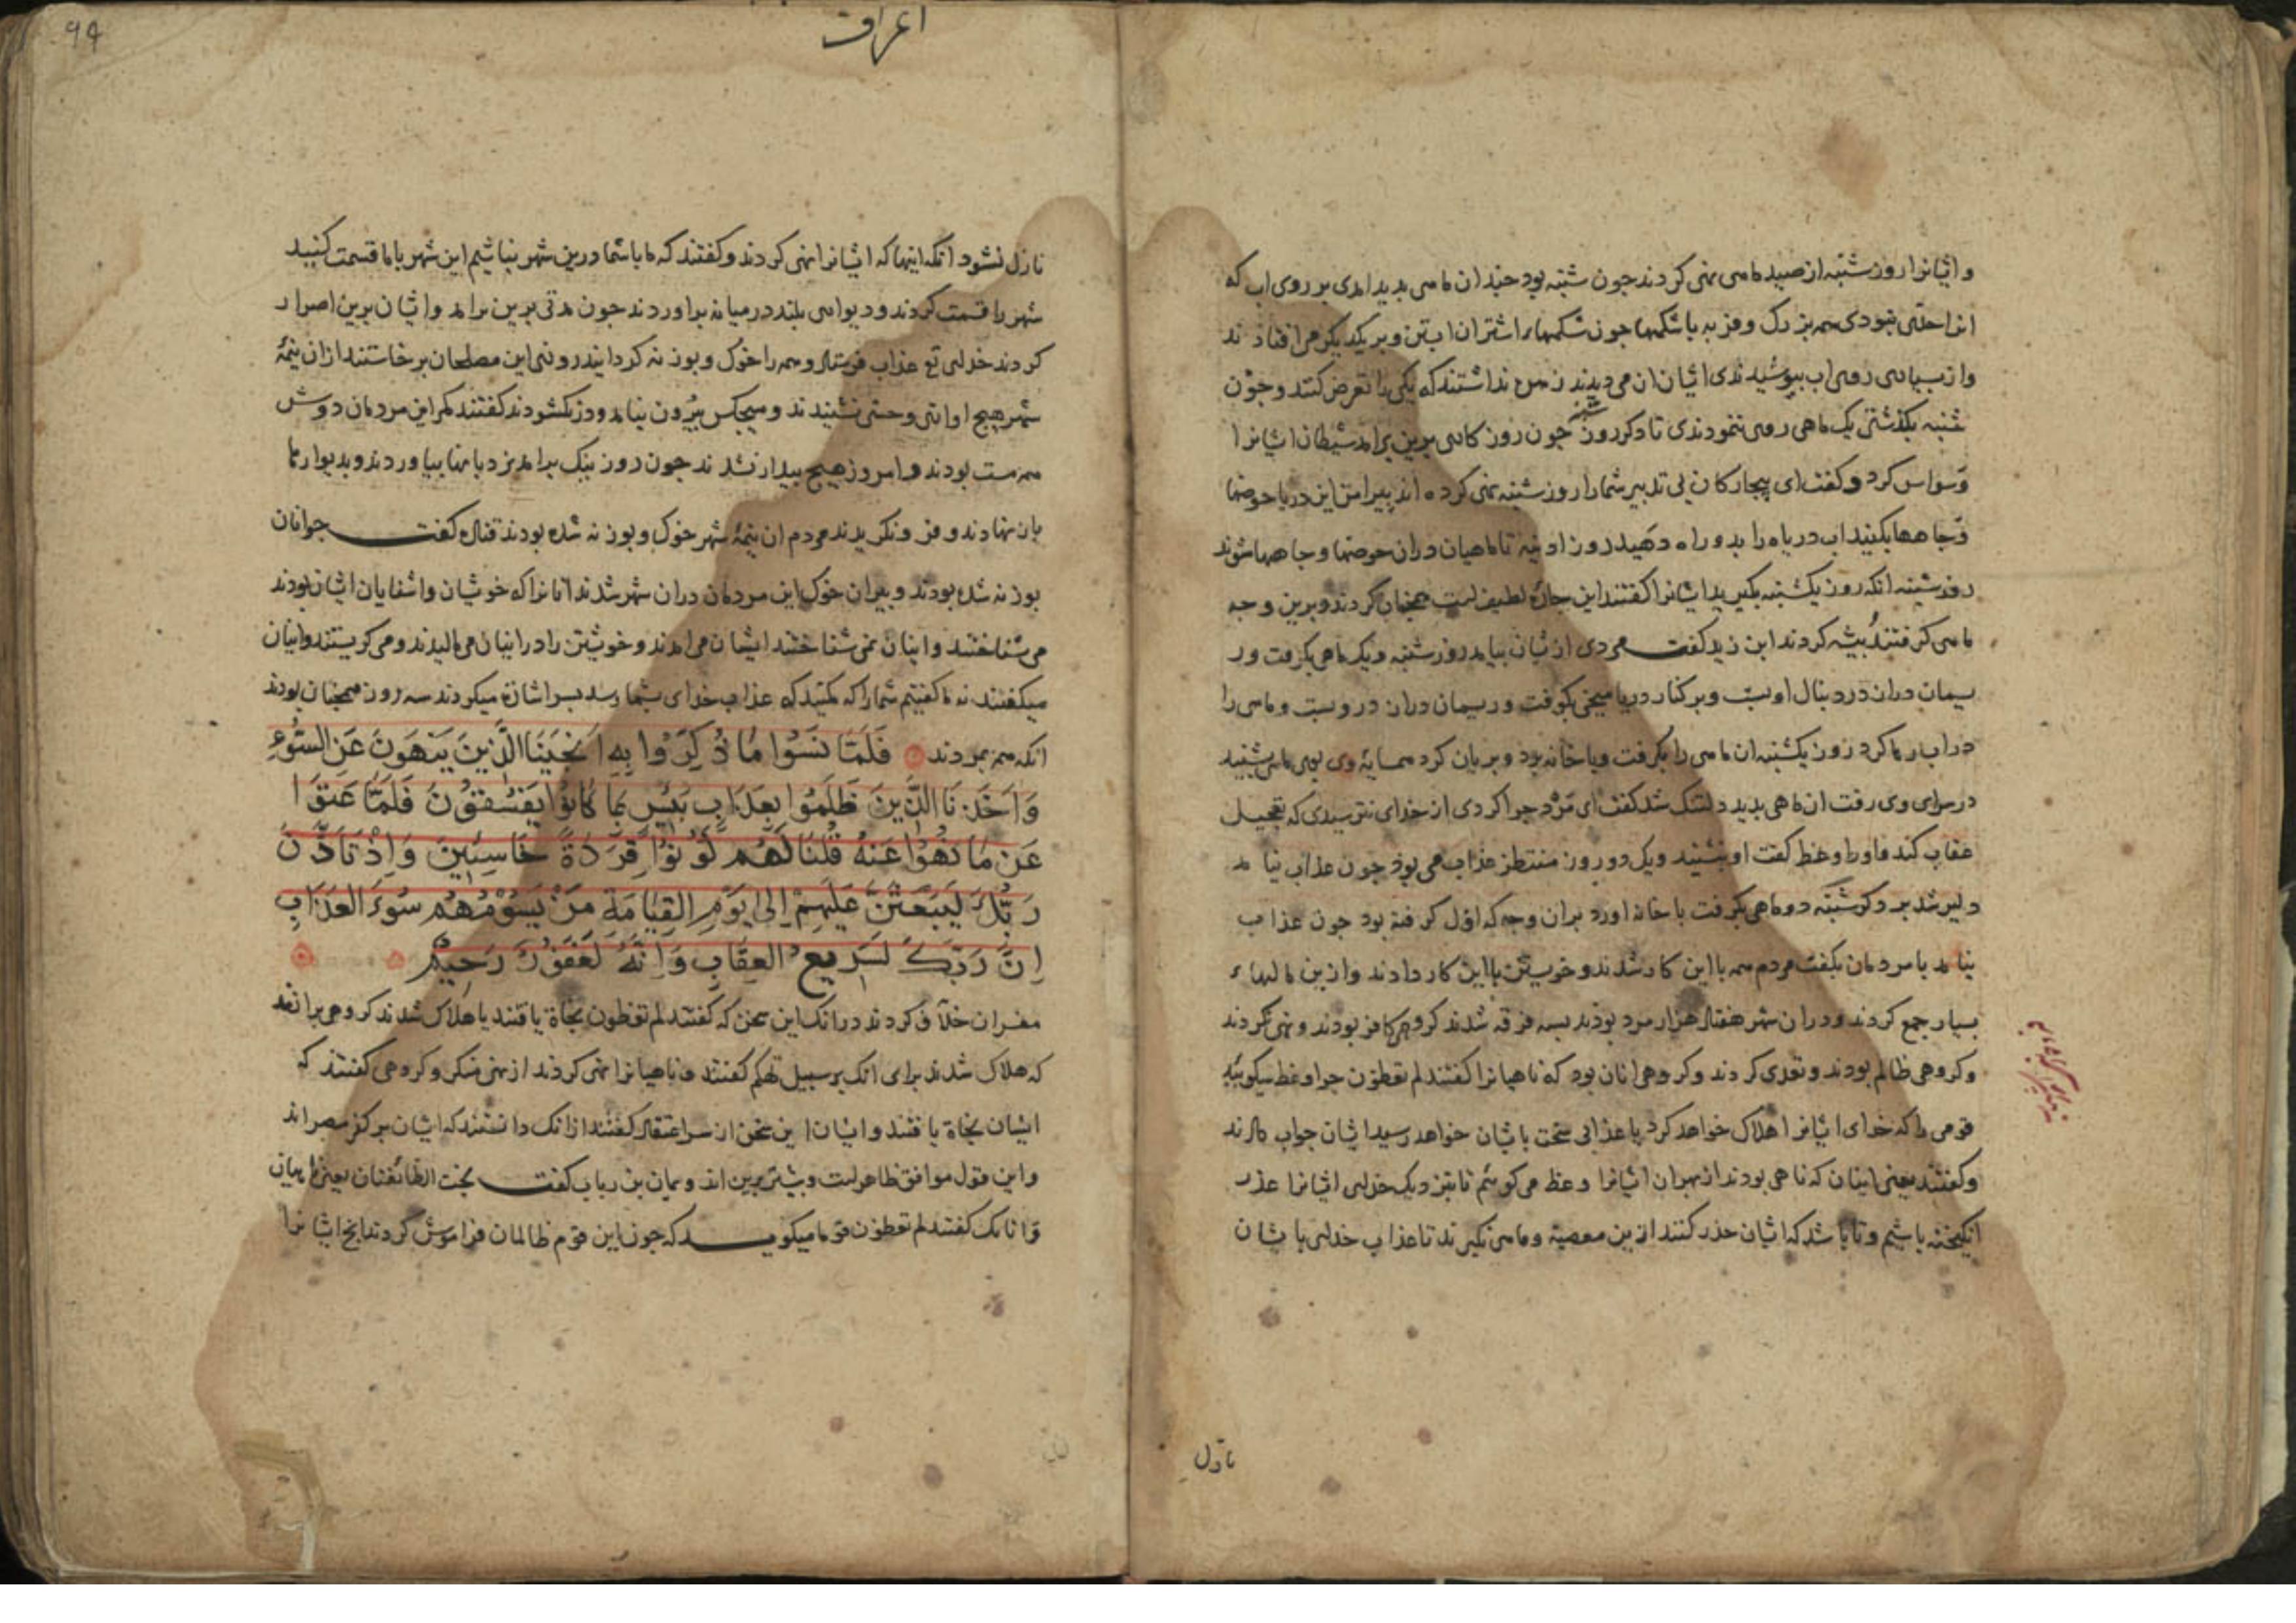 و ایشانرا روز شنبه از صید ماهی نهی کردند جون شنبه بود جندان ماهی بدید امدی بر روی اب که
انرا حدی نبودی همه بزرک و فربه با شکمها جون شکمهاء اشتران ابستن و بر یکدیکر می افتادند
و از بسیاری روی اب ببوشیدندی ایشان ان می دیدند زهره نداشتند که یکی را تعرض کنند و جون
شنبه بکذشتی یک ماهی روی ننمودندی تا دکر روز شنبه جون روزکاری برین برامد شیطان ایشانرا
وسواس کرد و کفت ای بیجارکان بی تدبیر شما را روز شنبه نهی کرده اند بیرامن این دریا حوضها
و جاهها بکنید اب دریا را بدو راه دهید روز ادینه تا ماهیان دران حوضها و جاهها شوند
روز شنبه انکه روز یکشنبه بکیرید ایشانرا کفتند این جارۀ لطیف است همجنان کردند و برین وجه
ماهی کرفتند بیشه کردند ابن زید کفت مردی ازیشان بیامد روز شنبه و یک ماهی بکرفت و ر
یسمان دران در دنبال او بست و بر کنار دریا میخی بکوفت و ریسمان دران درو بست و ماهی را
در اب رها کرد روز یکشنبه ان ماهی را بکرفت و با خانه برد و بریان کرد همسایۀ وی بوی ماهی بشنید
در سرای وی رفت ان ماهی بدید دلتنک شد کفت ای مرد جرا کردی از خدای نترسیدی که تعجیل
عقاب کند و او را وعظ کفت او نشنید و یک دو روز منتظر عذاب می بود جون عذاب نیا مد
دلیر شد بر دکر شنبه دو ماهی بکرفت با خانه اورد بران وجه که اول کرفته بود جون عذاب
نیامد با مردمان بکفت مردم همه با این کار شدند و خویشتن با این کار دادند و ازین مالهاء
بسیار جمع کردند و دران شهر هفتاد هزار مرد بودند بسه فرقه شدند کروهی کافر بودند و نهی نکردند
و کروهی ظالم بودند و تعدی کردند و کروهی انان بود که ناهیانرا کفتند لم تعظون جرا وعظ میکویید
قومی را که خدای ایشانرا هلاک خواهد کرد یا عذابی سخت بایشان خواهد رسید ایشان جواب دادند
و کفتند یعنی اینان که ناهی بودند از بهر ان ایشانرا وعظ می کوییم تا بنزدیک خدای ایشانرا عذر
انکیخته باشیم و تا باشد که ایشان حذر کنند ازین معصیة و ماهی نکیرند تا عذاب خدای بایشان
نازل
اعراف
نازل نشود انکه اینها که ایشانرا نهی کردند و کفتند که ما با شما درین شهر نباشیم این شهر با ما قسمت کنید
شهر را قسمت کردند و دیواری بلند در میانه براوردند جون مدتی برین برامد و ایشان برین اصرار
کردند خدای تع عذاب فرستاد و همه را خوک و بوزنه کردانید روزی این مصلحان برخاستند ازان نیمۀ
شهر هیج اوازی و حسی نشنیدند و هیجکس بیرون نیامد و در نکشودند کفتند مکر این مردمان دوش
همه مست بودند و امروز هیج بیدار نشدند جون روز نیک برامد نردبانها بیاوردند و بدیوارها
بازنهادند و فرو نکریدند مردم ان نیمۀ شهر خوک و بوزنه شده بودند قتاده کفت جوانان
بوزنه شده بودند و بیران خوک این مردمان دران شهر شدند انانرا که خویشان و اشنایان ایشان بودند
می شناختند و اینان نمی شناختند ایشان می امدند و خویشتن را در اینان می مالیدند و می کریستند و اینان
میکفتند نه ما کفتیم شما را که مکنید که عذاب خدای بشما رسد بسر اشارت میکردند سه روز همجنان بودند
انکه همه بمردند فَلَمَّا نَسُوا مَا ذُكِّرُوا بِهِ اَنْجَيْنَا الَّذِينَ يَنْهَوْنَ عَنِ السُّوْءِ
وَاَخَذْنَا الَّذِينَ ظَلَمُوا بِعَذَابٍ بَئِيسٍ بِمَا كَانُوا يَفْسُقُونَ فَلَمَّا عَتَوْا
عَنْ مَا نُهُوا عَنْهُ قُلْنَا لَهُمْ كُونُوا قِرَدَةً خَاسِئِينَ وَاِذْ تَاَذَّنَ
رَبُّكَ لَيَبْعَثَنَّ عَلَيْهِمْ اِلَى يَوْمِ الْقِيَامَةِ مَنْ يَسُومُهُمْ سُوءَ الْعَذَابِ
اِنَّ رَبَّكَ لَسَرِيعُ الْعِقَابِ وَاِنَّهُ لَغَفُورٌ رَحِيمٌ
مفسران خلاف کردند درانک این سخن که کفتند لم تعظون نجاة یافتند یا هلاک شدند کروهی برانند
که هلاک شدند برای انک بر سبیل تهکم کفتند و ناهیانرا نهی کردند از نهی منکر و کروهی کفتند که
ایشان نجاة یافتند و ایشان این سخن از سر اعتقاد کفتند ازانک دانستند که ایشان بر کفر مصراند
و این قول موافق ظاهر است و بیشتر برین اند و یمان بن رباب کفت نجت الطائفتان یعنی ناهیان
و انانک کفتند لم تعظون قوما میکوید که جون این قوم ظالمان فراموش کردند انج ایشانرا